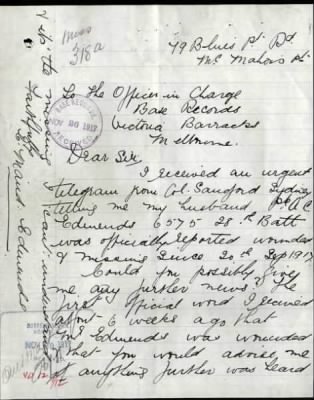 Miss
318a
79 Blues Pt Rd
McMahons Pt
To the Officer in Charge
Base Records
Victoria Barracks
Melbourne.
BASE RECORDS
NOV 26 1917
RECEIVED
Dear Sir
I received an urgent
telegram from Col. Sandford Sydney
telling me my husband Pte A C
Edmunds 6575 28th Batt
was officially reported wounded
& missing since 20th Sep 1917
Could you possibly give
me any further news. The
first official word I received
about 6 weeks ago that
Edmunds was wounded
& that you would advise me
if anything further was heard
the missing I cant understand
Faithfully
Maud Edmunds